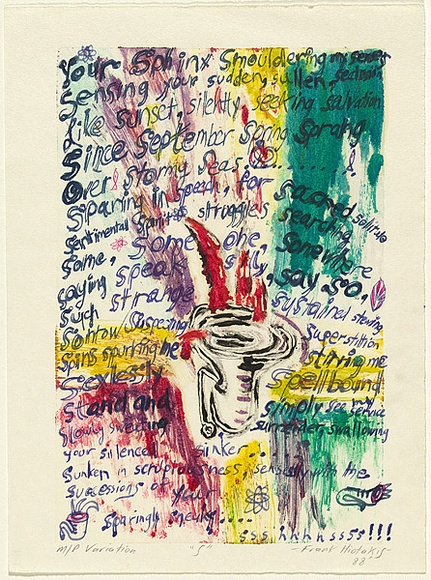 Your Sphinx Smouldering my senses
Sensing your sudden, sullen,
Like sunset, silently, seeking salvation
Since September Spring Sprang
Over stormy seas.
Sparing in speech, for sacred solitude
Sentimental Spirit struggles searching
Some, some one, somewhere
saying speak silly, say so,
such strange sustained
Sorrow Suspecting Superstition
Spins spurting me stirring me
Sexlessly Spellbound
stand and simply see my service
slowly sweating surrender, swallowing
your silenced sinker..
Sunken in scrupulousness, sensed with the
successions of your
sparingly
sss hhhnssss!!!
M/P Variation "S" - Frank Hiotakis -
88'